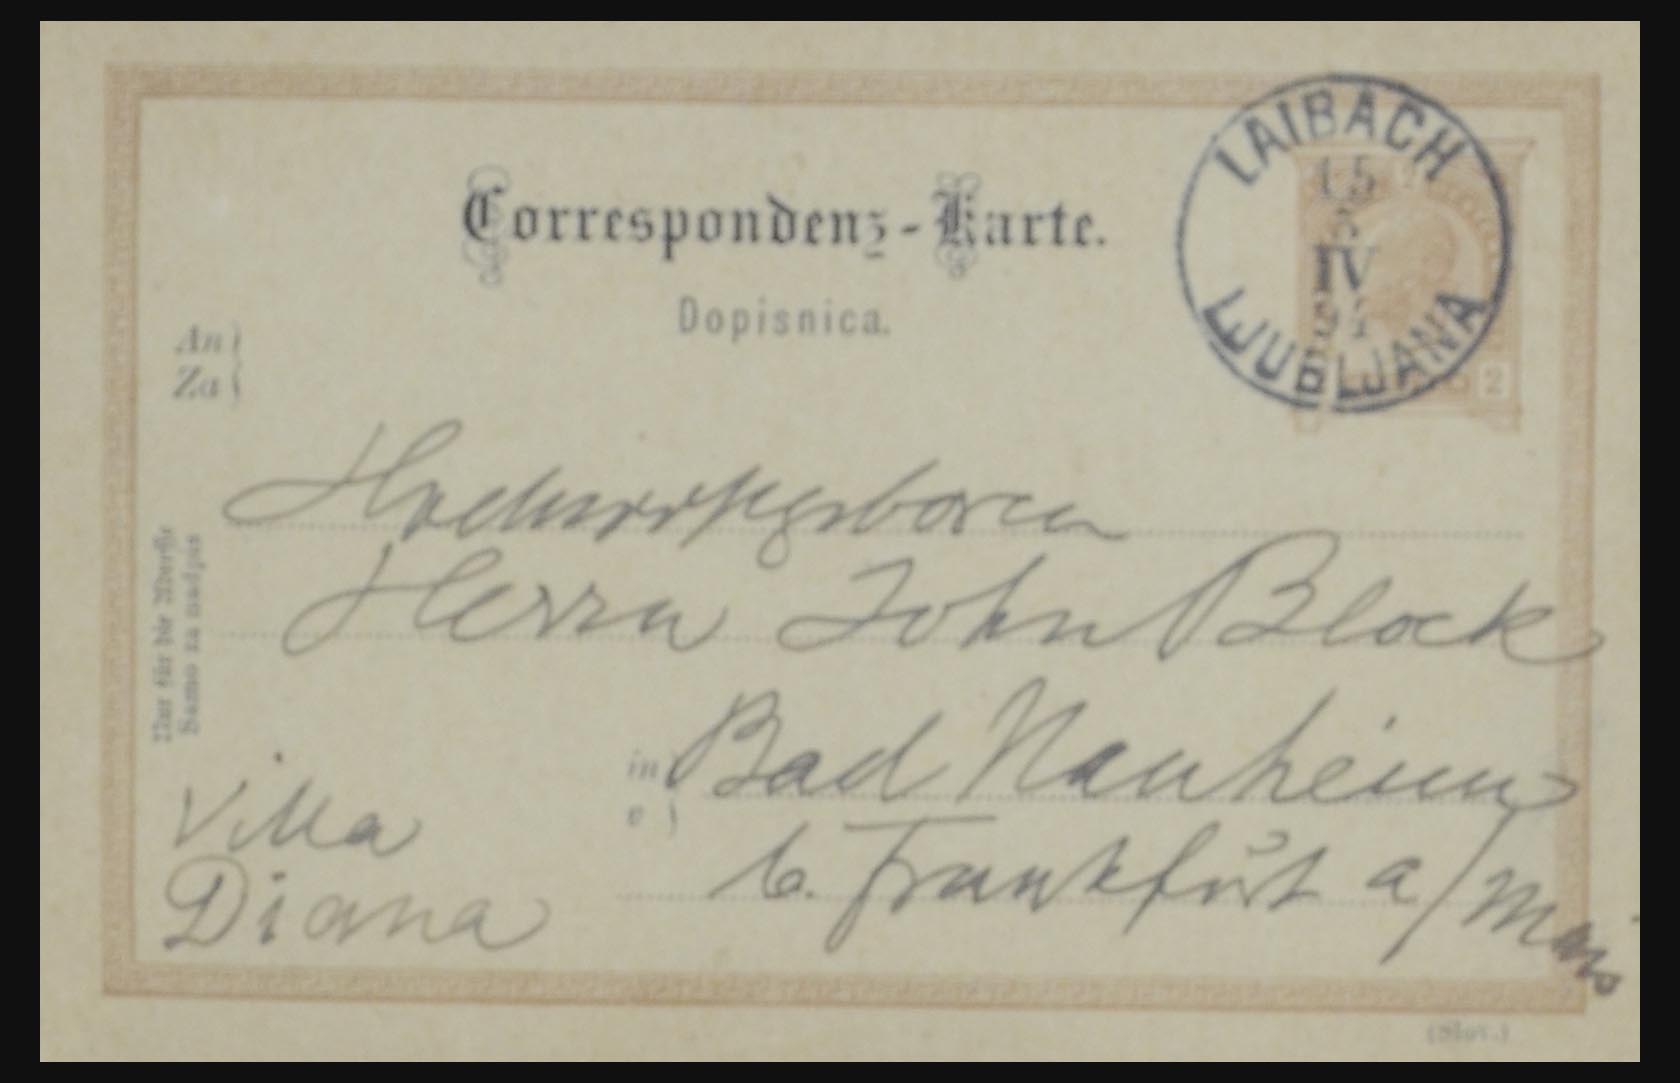 Correspondenz-Karte.
Dopisnica.
LAIBACH
15
5
IV
LJUBLJANA
2
An
Za
Hochwohlgeboren
Herrn John Block
in Bad Nauheim
v
b. Frankfurt a/Main
Villa
Diana
Nur für die Adresse
Samo za nadpis
(Slov.)